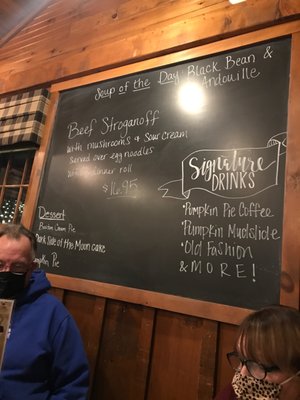 Soup of the Day Black Bean &
Andouille
Beef Stroganoff
with mushrooms & sour cream
Served over egg noodles
dinner roll
$16.95
Signature
DRINKS
*Pumpkin Pie Coffee
*Pumpkin Mudslide
*Old Fashion
& MORE!
Dessert
Cream Pie
Dark Side of the Moon cake
Pumpkin Pie